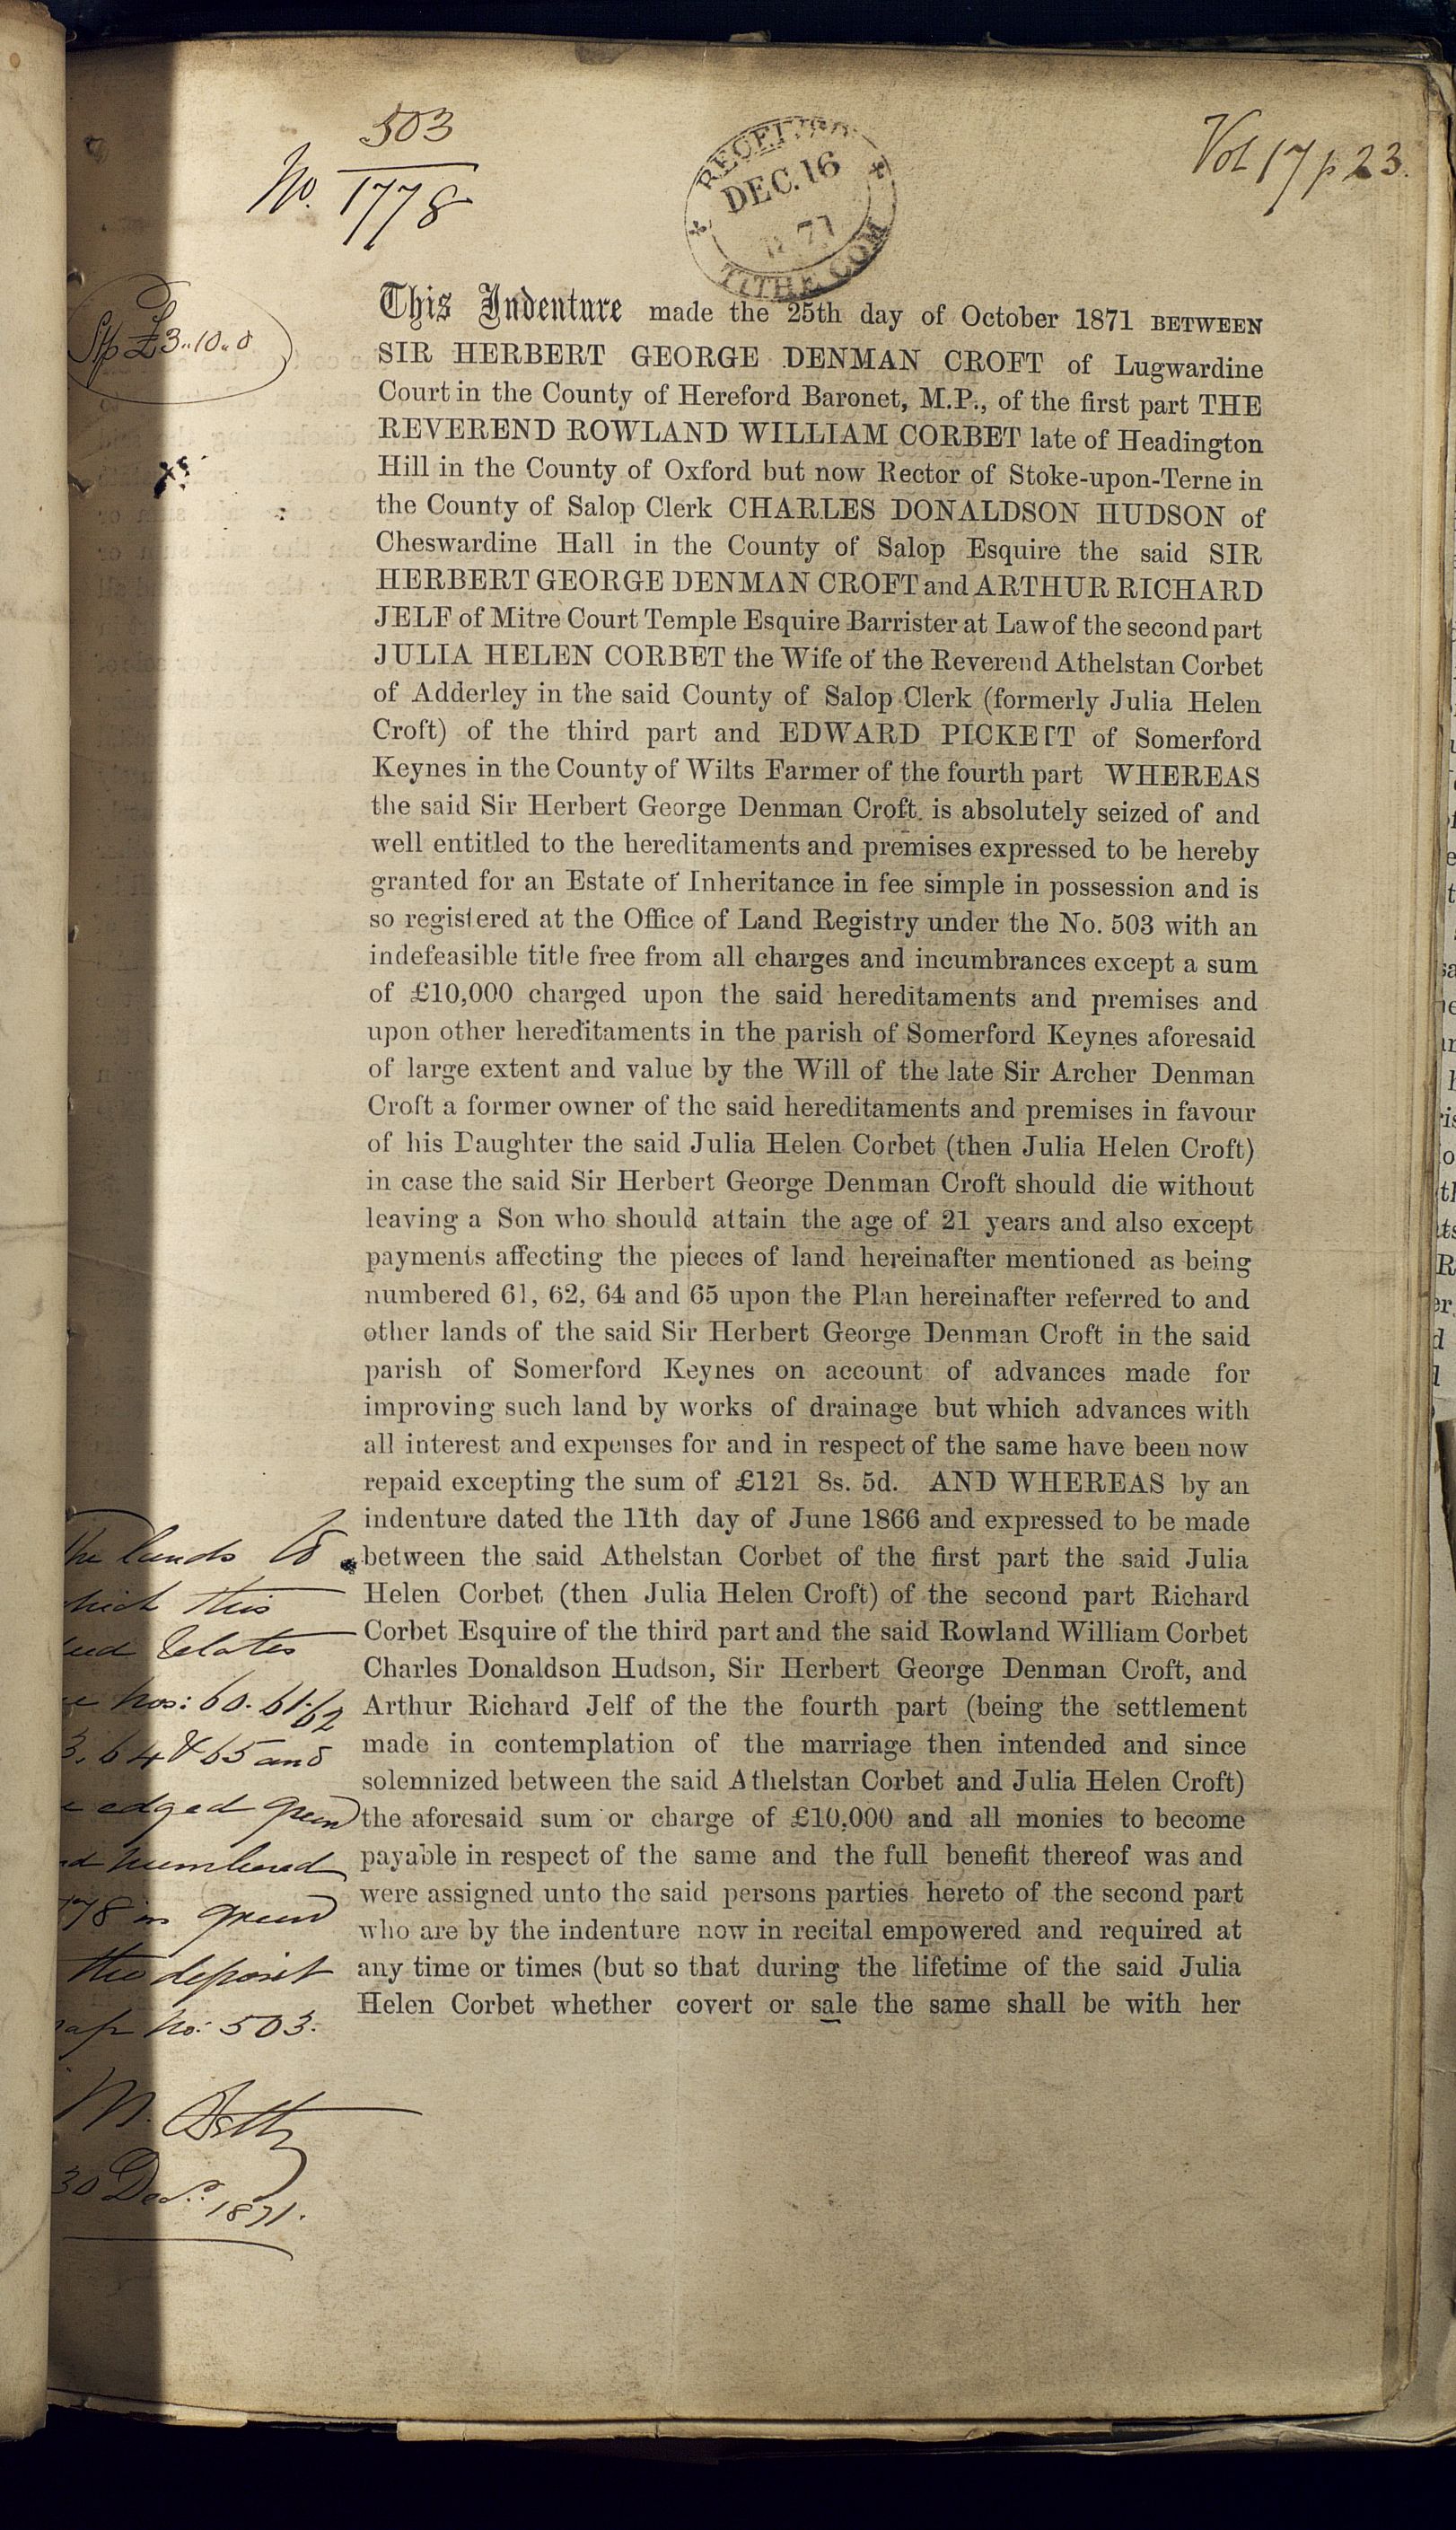 503
No. 1778
Vol 17 p 23.
RECEIVED
DEC. 16
TITHE COM
£3..10..0
This Indenture made the 25th day of October 1871 BETWEEN
SIR HERBERT GEORGE DENMAN CROFT of Lugwardine
Court in the County of Hereford Baronet, M.P., of the first part THE
REVEREND ROWLAND WILLIAM CORBET late of Headington
Hill in the County of Oxford but now Rector of Stoke-upon-Terne in
the County of Salop Clerk CHARLES DONALDSON HUDSON of
Cheswardine Hall in the County of Salop Esquire the said SIR
HERBERT GEORGE DENMAN CROFT and ARTHUR RICHARD
JELF of Mitre Court Temple Esquire Barrister at Law of the second part
JULIA HELEN CORBET the Wife of the Reverend Athelstan Corbet
of Adderley in the said County of Salop Clerk (formerly Julia Helen
Croft) of the third part and EDWARD PICKETT of Somerford
Keynes in the County of Wilts Farmer of the fourth part WHEREAS
the said Sir Herbert George Denman Croft is absolutely seized of and
well entitled to the hereditaments and premises expressed to be hereby
granted for an Estate of Inheritance in fee simple in possession and is
so registered at the Office of Land Registry under the No. 503 with an
indefeasible title free from all charges and incumbrances except a sum
of £10,000 charged upon the said hereditaments and premises and
upon other hereditaments in the parish of Somerford Keynes aforesaid
of large extent and value by the Will of the late Sir Archer Denman
Croft a former owner of the said hereditaments and premises in favour
of his Daughter the said Julia Helen Corbet (then Julia Helen Croft)
in case the said Sir Herbert George Denman Croft should die without
leaving a Son who should attain the age of 21 years and also except
payments affecting the pieces of land hereinafter mentioned as being
numbered 61, 62, 64 and 65 upon the Plan hereinafter referred to and
other lands of the said Sir Herbert George Denman Croft in the said
parish of Somerford Keynes on account of advances made for
improving such land by works of drainage but which advances with
all interest and expenses for and in respect of the same have been now
repaid excepting the sum of £121 8s. 5d. AND WHEREAS by an
indenture dated the 11th day of June 1866 and expressed to be made
between the said Athelstan Corbet of the first part the said Julia
Helen Corbet (then Julia Helen Croft) of the second part Richard
Corbet Esquire of the third part and the said Rowland William Corbet
Charles Donaldson Hudson, Sir Herbert George Denman Croft, and
Arthur Richard Jelf of the the fourth part (being the settlement
made in contemplation of the marriage then intended and since
solemnized between the said Athelstan Corbet and Julia Helen Croft)
the aforesaid sum or charge of £10,000 and all monies to become
payable in respect of the same and the full benefit thereof was and
were assigned unto the said persons parties hereto of the second part
who are by the indenture now in recital empowered and required at
any time or times (but so that during the lifetime of the said Julia
Helen Corbet whether covert or sale the same shall be with her
The lands to
which this
relates
nos: 60. 61. 62
3. 64 & 65 and
edged green
numbered
78 in green
the deposit
no: 503.
30 Decr. 1871.